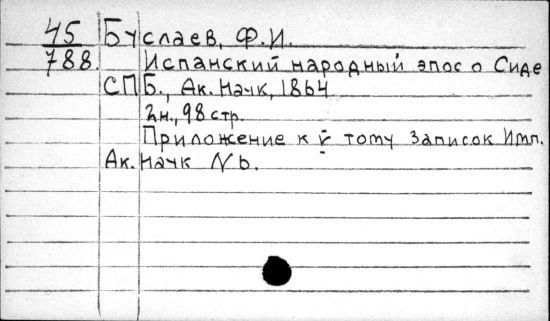 45 Буслаев, Ф.И.
788. Испанский народный эпос о Сиде
СПБ., Ак. Наук, 1864
2н., 98 стр.
Приложение к V тому Записок Имп.
Ак. Наук № 6.